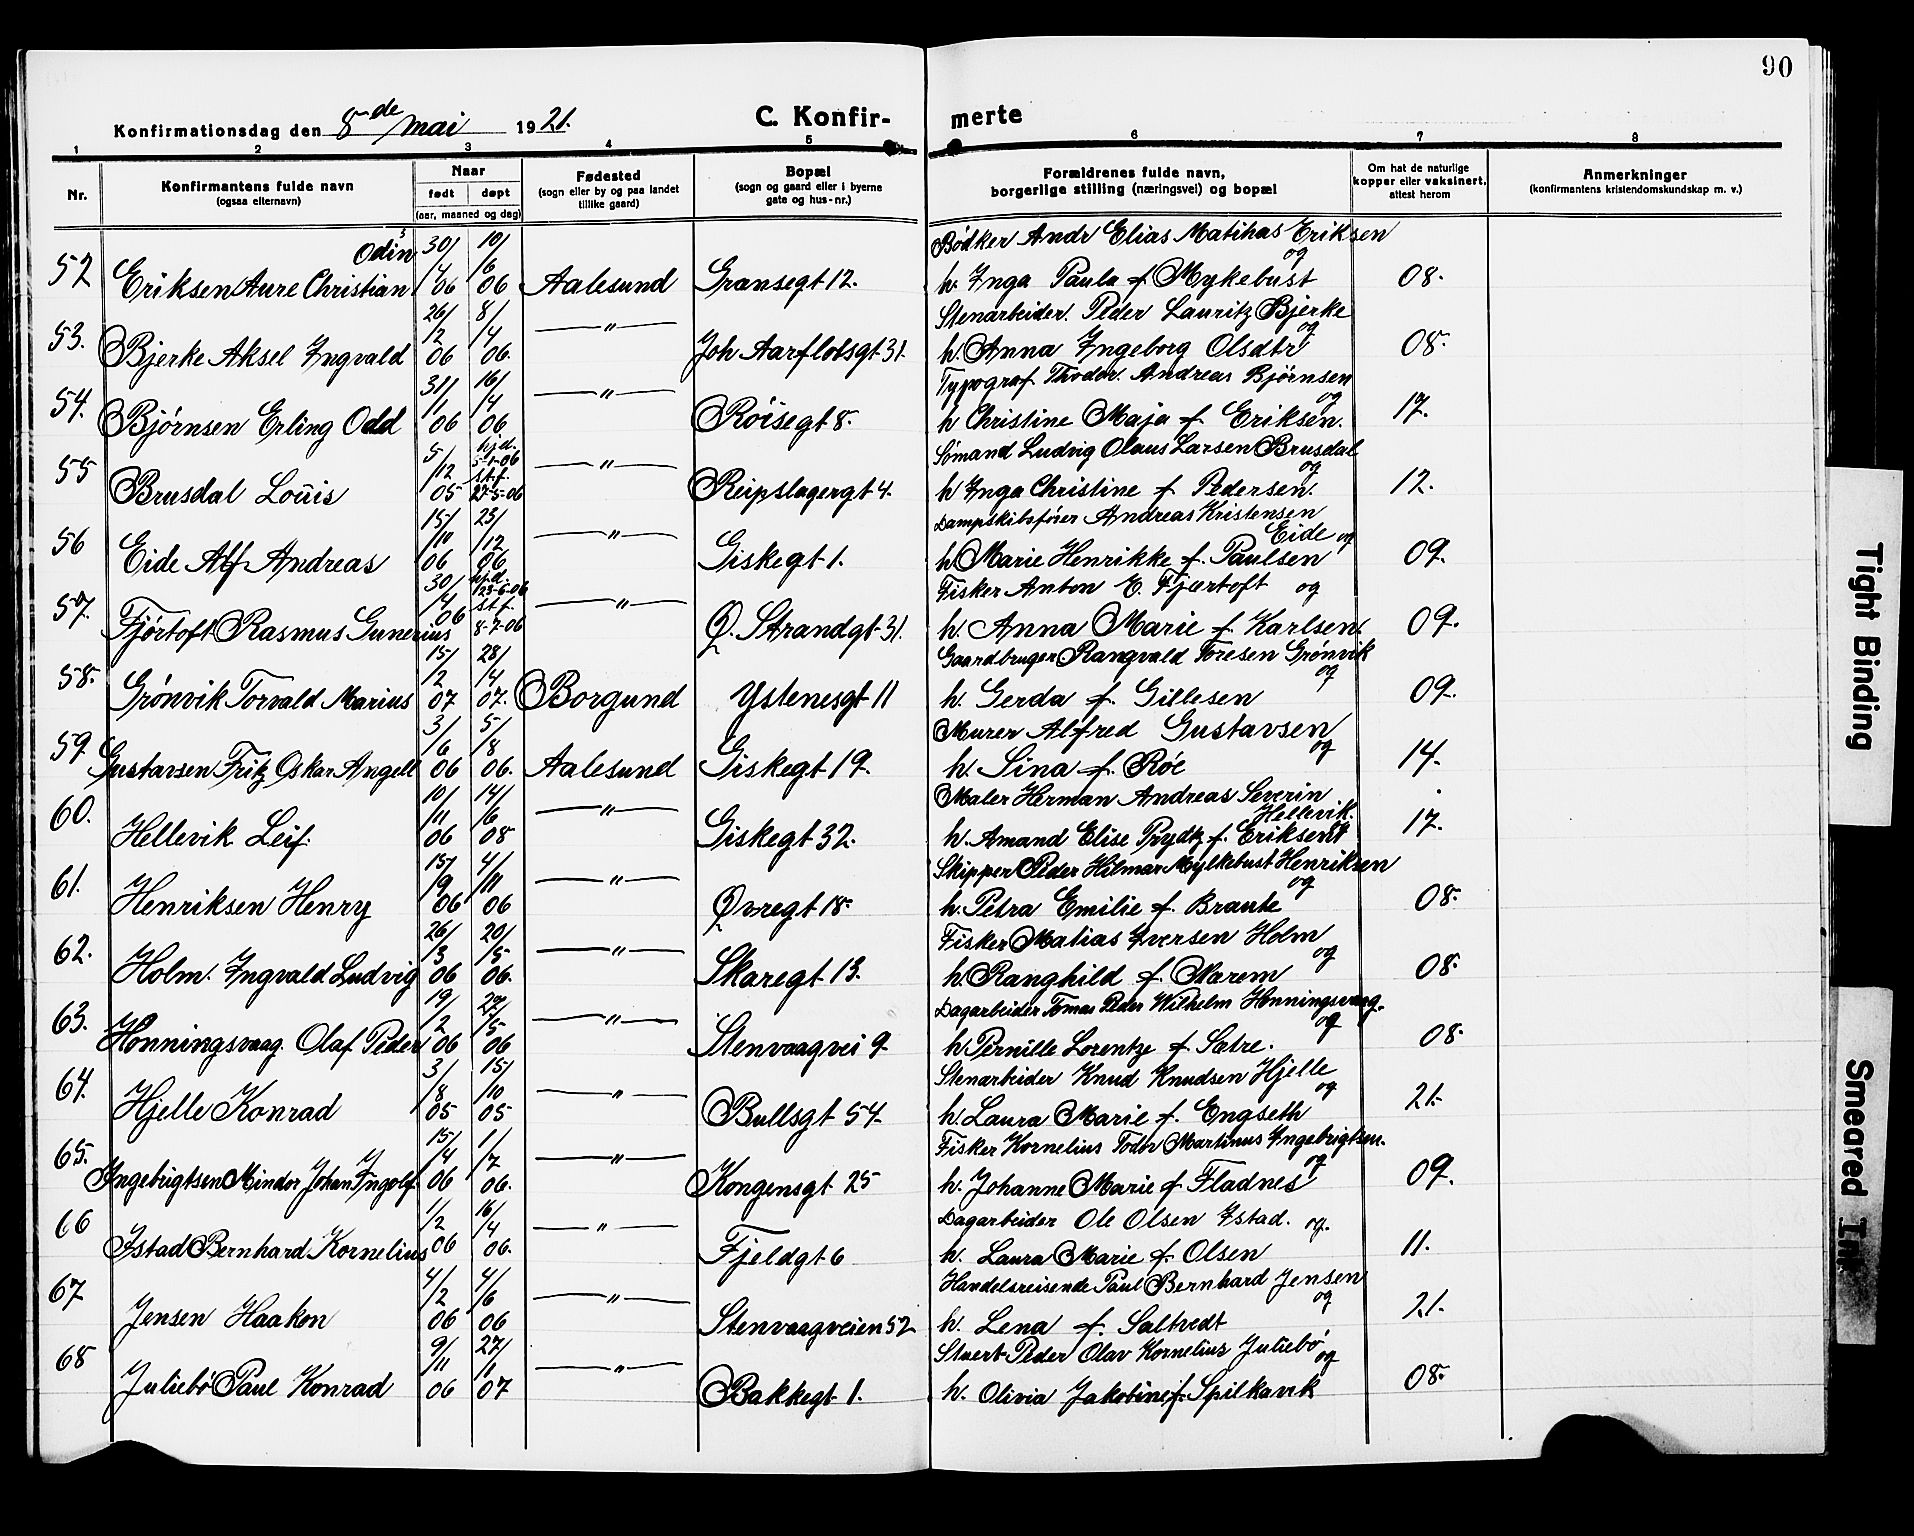 90
Konfirmationsdag den 8de mai 1921.
C. Konfirmerte
1 2 3 4 5 6 7 8
Nr.
Konfirmantens fulde navn
(ogsaa efternavn)
Naar
født døpt
(aar, maaned og dag)
Fødested
(sogn eller by og paa landet
tillike gaard)
Bopæl
(sogn og gaard eller i byerne
gate og hus-nr.)
Forældrenes fulde navn,
borgerlige stilling (næringsvei) og bopæl
Om hat de naturlige
kopper eller vaksinert,
attest herom
Anmerkninger
(konfirmantens kristendomskundskap m. v.)
52 Eriksen Aure Christian Odin 30/4 06 10/6 06 Aalesund Gransegt 12. Bødker Andr Elias Matihas Eriksen og
h. Inga Paula f. Mykebust 08.
53. Bjerke Aksel Ingvald 26/2 06 8/4 06. — " — Joh Aarflotsgt 31. Stenarbeider. Peder Lauritz Bjerke og
h. Anna Ingeborg Olsdtr 08.
54. Bjørnsen Erling Odd 31/1 06 16/4 06 — " — Røisegt 8. Typograf Thodor. Andreas Bjørnsen og
h Christine Maja f. Eriksen. 17.
55 Brusdal Louis 5/12 05 hj.d. 5-1-06 st.f. 27-5-06 — " — Reipslagergt 4. Sømand Ludvig Olaus Larsen Brusdal og
h Inga Christine f. Pedersen. 12.
56 Eide Alf Andreas 15/10 06 23/12 06 — " — Giskegt 1. Dampskibsfører Andreas Kristensen Eide og
h Marie Henrikke f. Paulsen 09.
57. Fjørtoft Rasmus Gunerius 30/4 06 hj.d. 23-6-06 st.f. 8-7-06 — " — Ø. Strandgt 31. Fisker Anton E. Fjærtoft og
h. Anna Marie f. Karlsen. 09.
58. Grønvik Torvald Marius 15/2 07 28/4 07. Borgund Ystenesgt 11 Gaardbruger Rangvald Toresen Grønvik og
h. Gerda f. Gillesen 09.
59. Gustavsen Fritz Oskar Angell 3/6 06 5/8 06. Aalesund Giskegt 19. Murer Alfred Gustavsen og
h. Sina f. Røe 14.
60. Hellevik Leif. 10/11 06 14/6 08 — " — Giskegt 32. Maler Herman Andreas Severin Hellevik.
h. Amand Elise Prydtz f. Eriksen 17.
61. Henriksen Henry 15/9 06 4/11 06 — " — Øvregt 18. Skipper Peder Hilmar Mylkebust Henriksen og
h. Petra Emilie f. Braute 08.
62. Holm. Ingvald Ludvig 26/3 06 20/5 06. — " — Skaregt 13. Fisker Matias Iversen Holm og
h. Ranghild f. Marem 08.
63. Honningsvaag. Olaf Peder 19/2 06 27/5 06 — " — Stenvaagvei 9. Dagarbeider Tomas Peder Wilhelm Honningsvaag. og
h Pernille Lorentze f. Sætre. 08.
64. Hjelle Konrad 3/8 05 15/10 05 — " — Bullsgt 54. Stenarbeider Knud Knudsen Hjelle og
h. Laura Marie f. Engseth 21.
65. Ingebrigtsen Mindor Johan Ingolf. 15/4 06 1/7 06. — " — Kongensgt 25 Fisker Kornelius Todor Martinus Ingebrigtsen. og
h. Johanne Marie f. Fladnes 09.
66 Istad Bernhard Kornelius 1/2 06 16/4 06. — " — Fjeldgt 6 Dagarbeider Ole Olsen Istad. og.
h. Laura Marie f. Olsen 11.
67 Jensen Haakon 4/2 06 4/6 06 — " — Stenvaagveien 52 Handelsreisende Paul Bernhard Jensen og
h. Lena f. Saltvedt 21.
68 Juliebø Paul Konrad 9/11 06 27/1 07 — " — Bakkegt 1. Stuert Peder Olav Kornelius Juliebø og
h. Olivia Jakobine f. Spilkavik 08.
Tight Binding
Smeared Ink